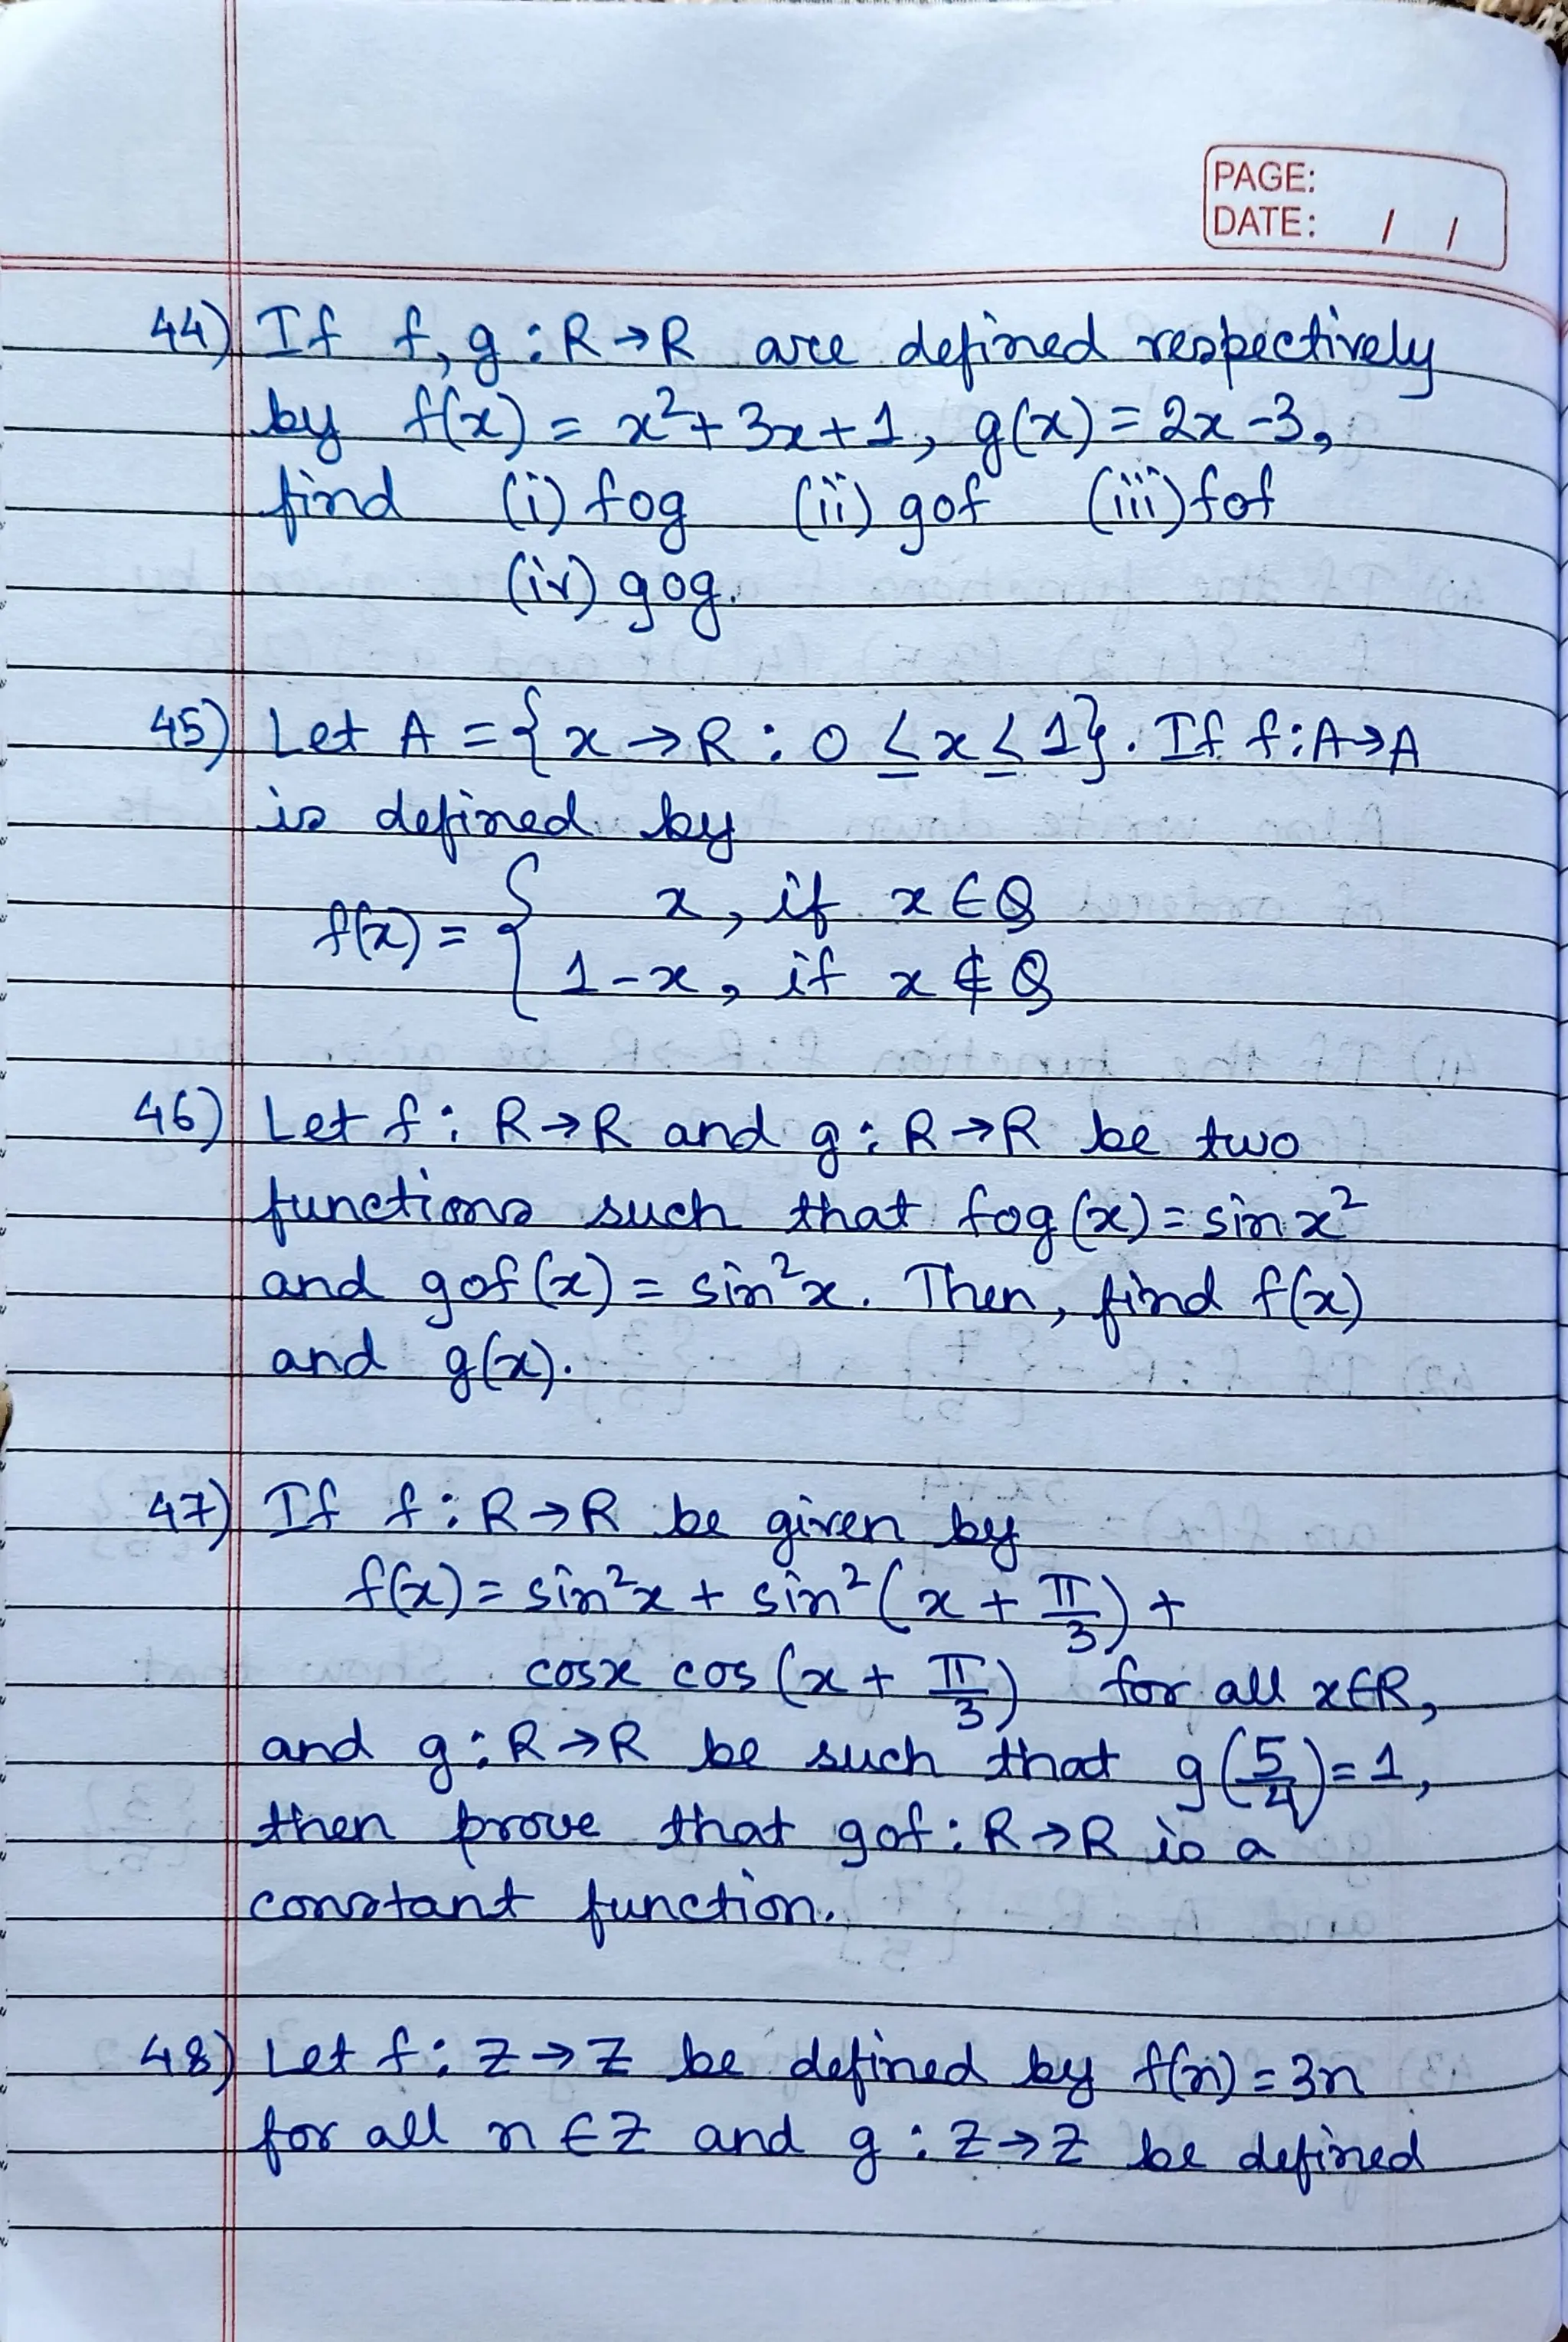 PAGE:
DATE: / /
44) If f, g : R → R are defined respectively
by f(x) = x² + 3x + 1, g(x) = 2x - 3,
find (i) fog (ii) gof (iii) fof
(iv) gog.
45) Let A = {x → R : 0 ≤ x ≤ 1}. If f : A → A
is defined by
f(x) = { x, if x ∈ Q
1 - x, if x ∉ Q
46) Let f : R → R and g : R → R be two
functions such that fog(x) = sin x²
and gof(x) = sin²x. Then, find f(x)
and g(x).
47) If f : R → R be given by
f(x) = sin²x + sin²(x + π/3) +
cosx cos(x + π/3) for all x ∈ R,
and g : R → R be such that g(5/4) = 1,
then prove that gof : R → R is a
constant function.
48) Let f : Z → Z be defined by f(n) = 3n
for all n ∈ Z and g : Z → Z be defined